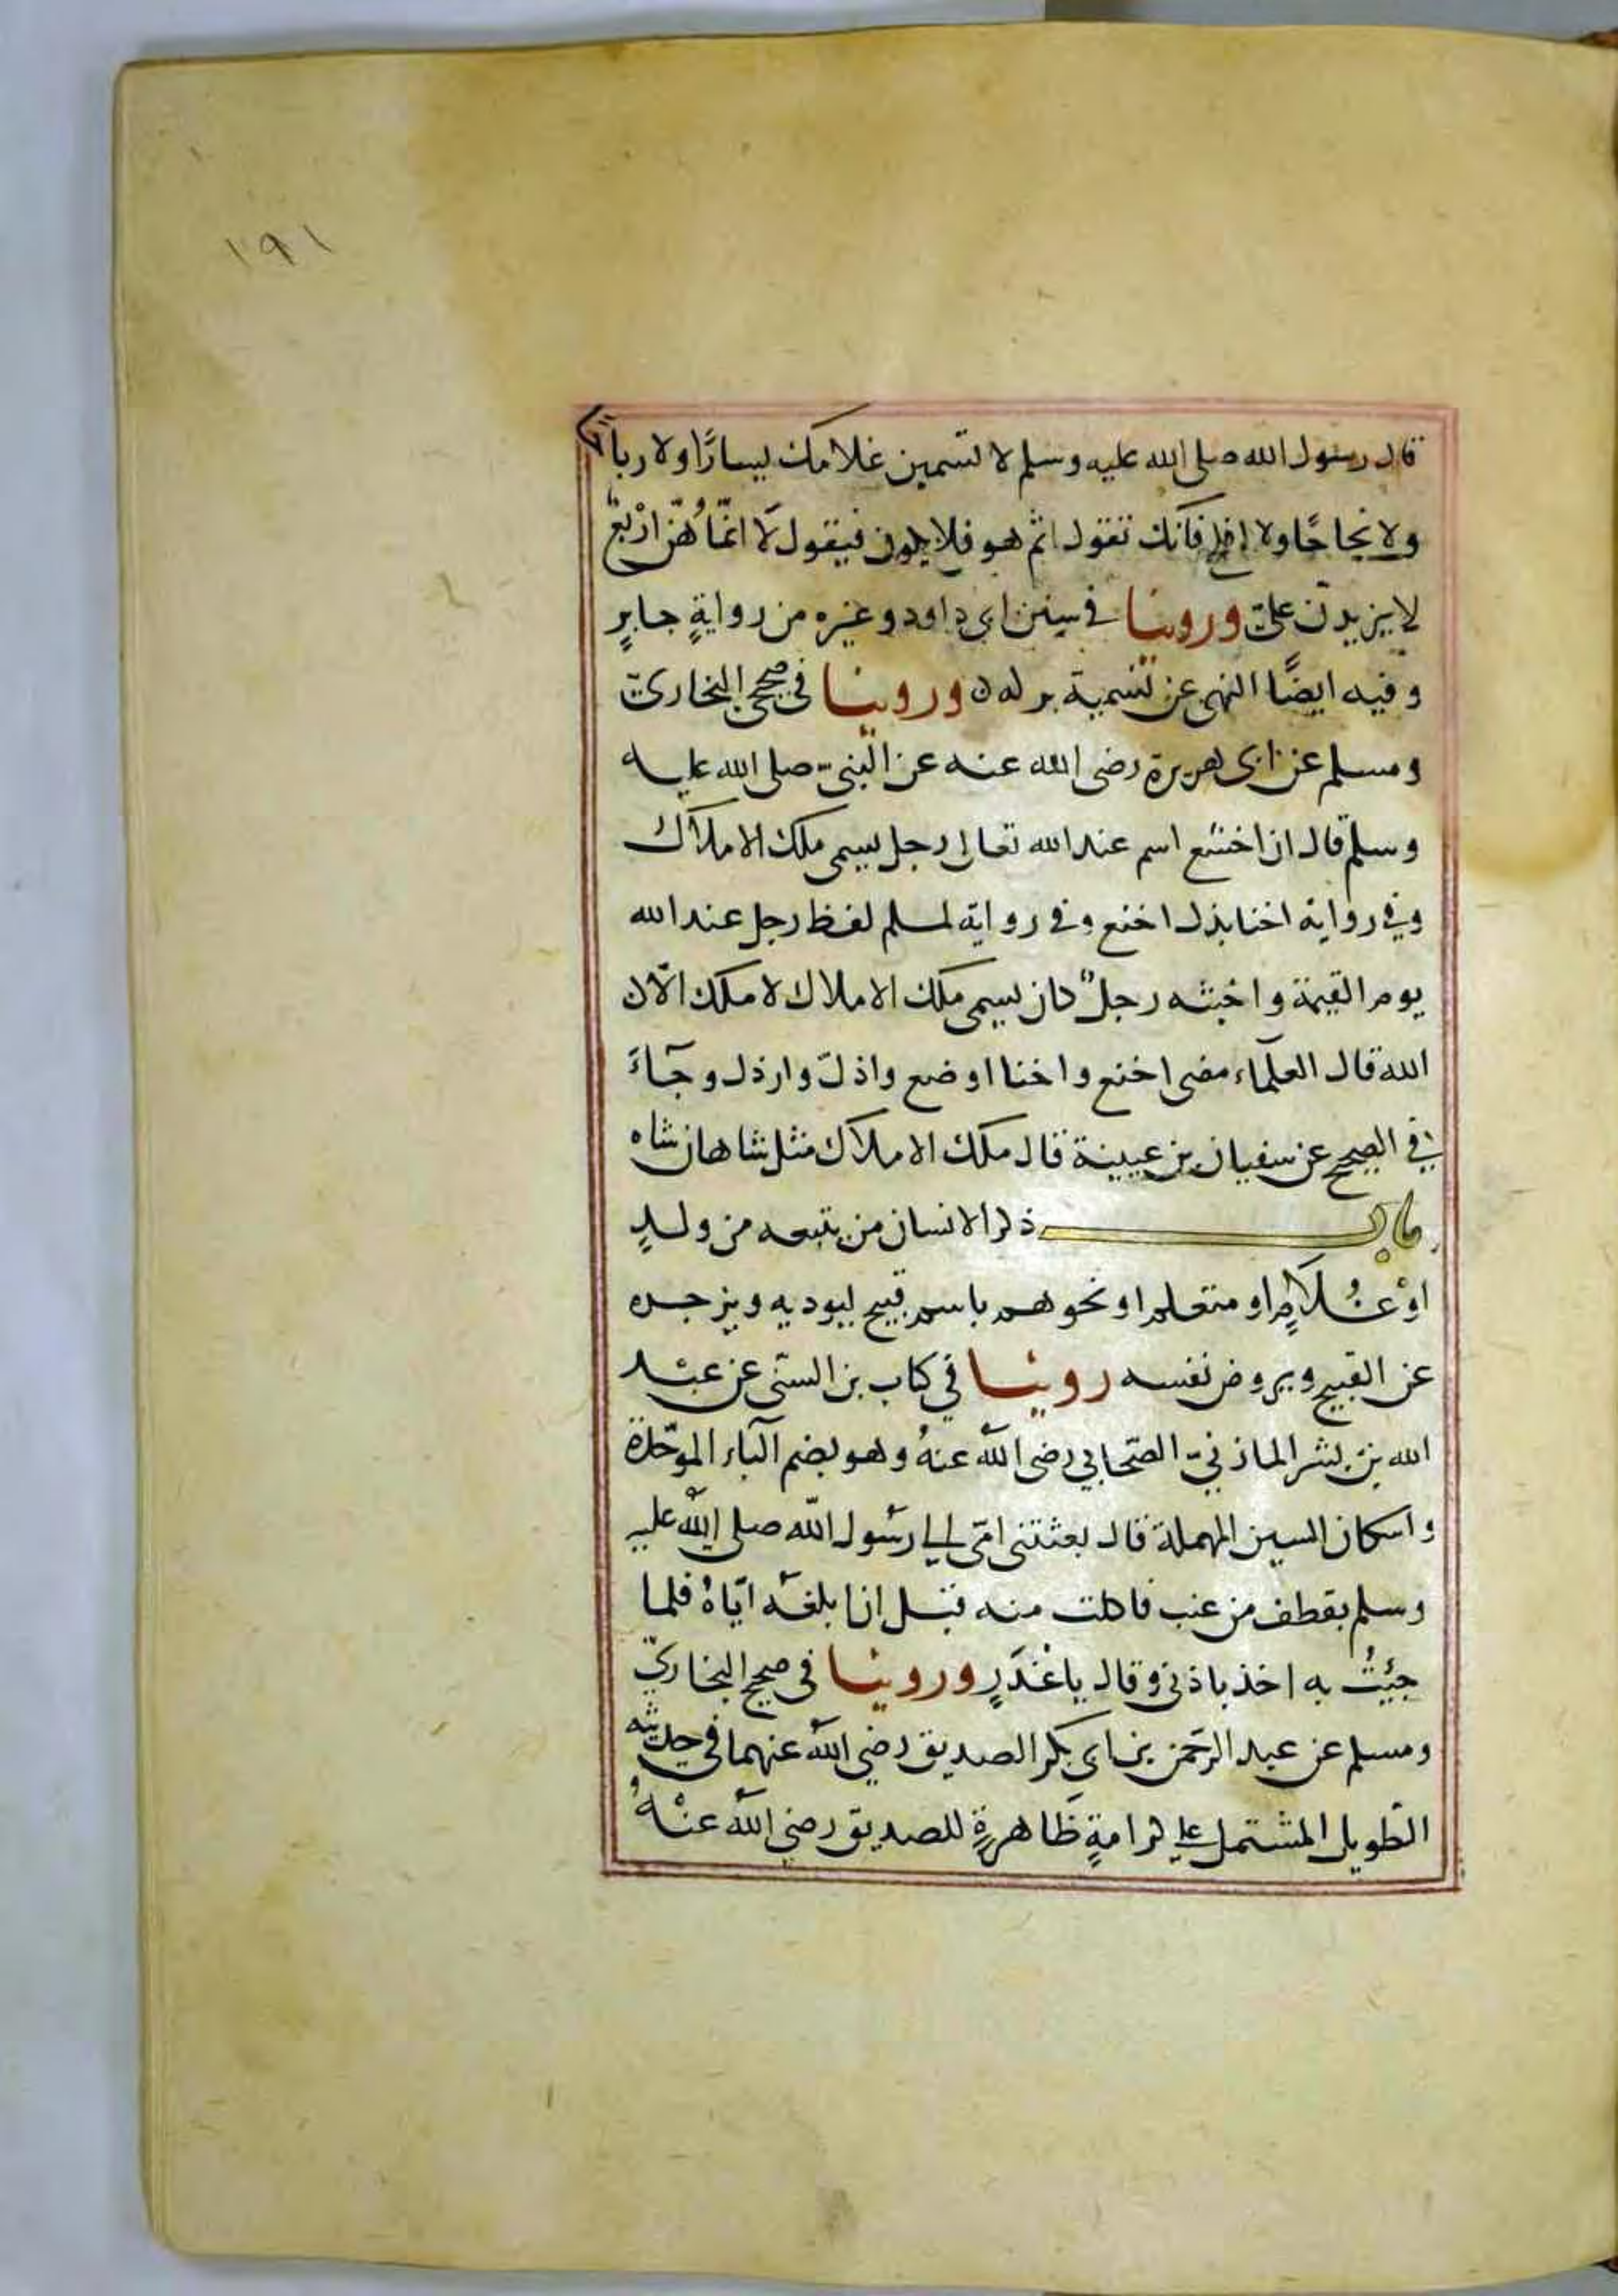 ١٩١
قال رسول الله صلى الله عليه وسلم لا تسمين غلامك يسارًا ولا رباحًا
ولا نجاحًا ولا افلح فانك تقول اثم هو فلا يكون فيقول لا انّما هُنّ اَرْبعٌ
لا يزيدنّ علىّ وروينا في سنن ابى داود وغيره من روايةٍ جابرٍ
وفيه ايضًا النهى عن تسمية بركه وروينا فى صحيحى البخارىّ
ومسلم عن ابى هريرة رضى الله عنه عن النبىّ صلى الله عليه
وسلم قال ان اخنع اسم عند الله تعالى رجل يسمى ملك الاملاك
وفى رواية اخنا بذل اخنع وفى رواية لمسلم لغظ رجل عند الله
يوم القيمة واخبثه رجلٌ كان يسمى ملك الاملاك لا ملك الّا
الله قال العلماء معنى اخنع واخنا اوضع واذلّ وارذل وجآءَ
فى الصحيح عن سفيان بن عيينة قال ملك الاملاك مثل شاهان شاه
باب ذكر الانسان من يتبعه من ولدٍ
اوْ غُلَامٍ او متعلم او نحوهم باسم قبيح ليوديه ويزجره
عن القبيح ويروض نفسه روينا فى كتاب بن السنّى عن عبْد
الله بن بشر المازنىّ الصّحابي رضى الله عنهُ وهو بضم الباء الموحّدة
واسكان السين المهملة قال بعثتنى امّى الى رسُول الله صلى الله عليه
وسلم بقطف من عنب فاكلت منه قبل ان ابلغه ايّاهُ فلما
جيئتُ به اخذ باذنى وقال يا غدَرٍ وروينا فى صحيح البخارىّ
ومسلم عن عبد الرحمن بن ابى بكر الصديق رضي الله عنهما فى حديثه
الطّويل المشتمل على كرامةٍ ظاهرةٍ للصديق رضى الله عنْهُ